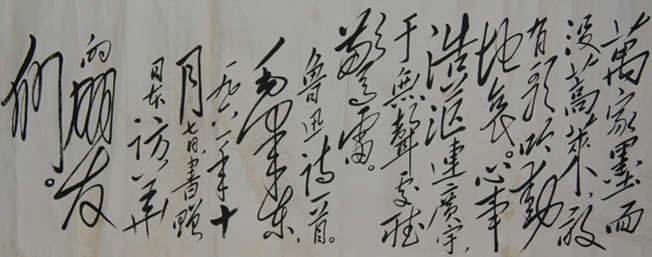 萬家墨面
没蒿萊，敢
有歌吟動
地哀。心事
浩茫連廣宇，
于無聲處聽
驚雷。
魯迅詩一首。
毛澤東
一九六一年十
月七日書贈
日本訪華
的朋友
們。